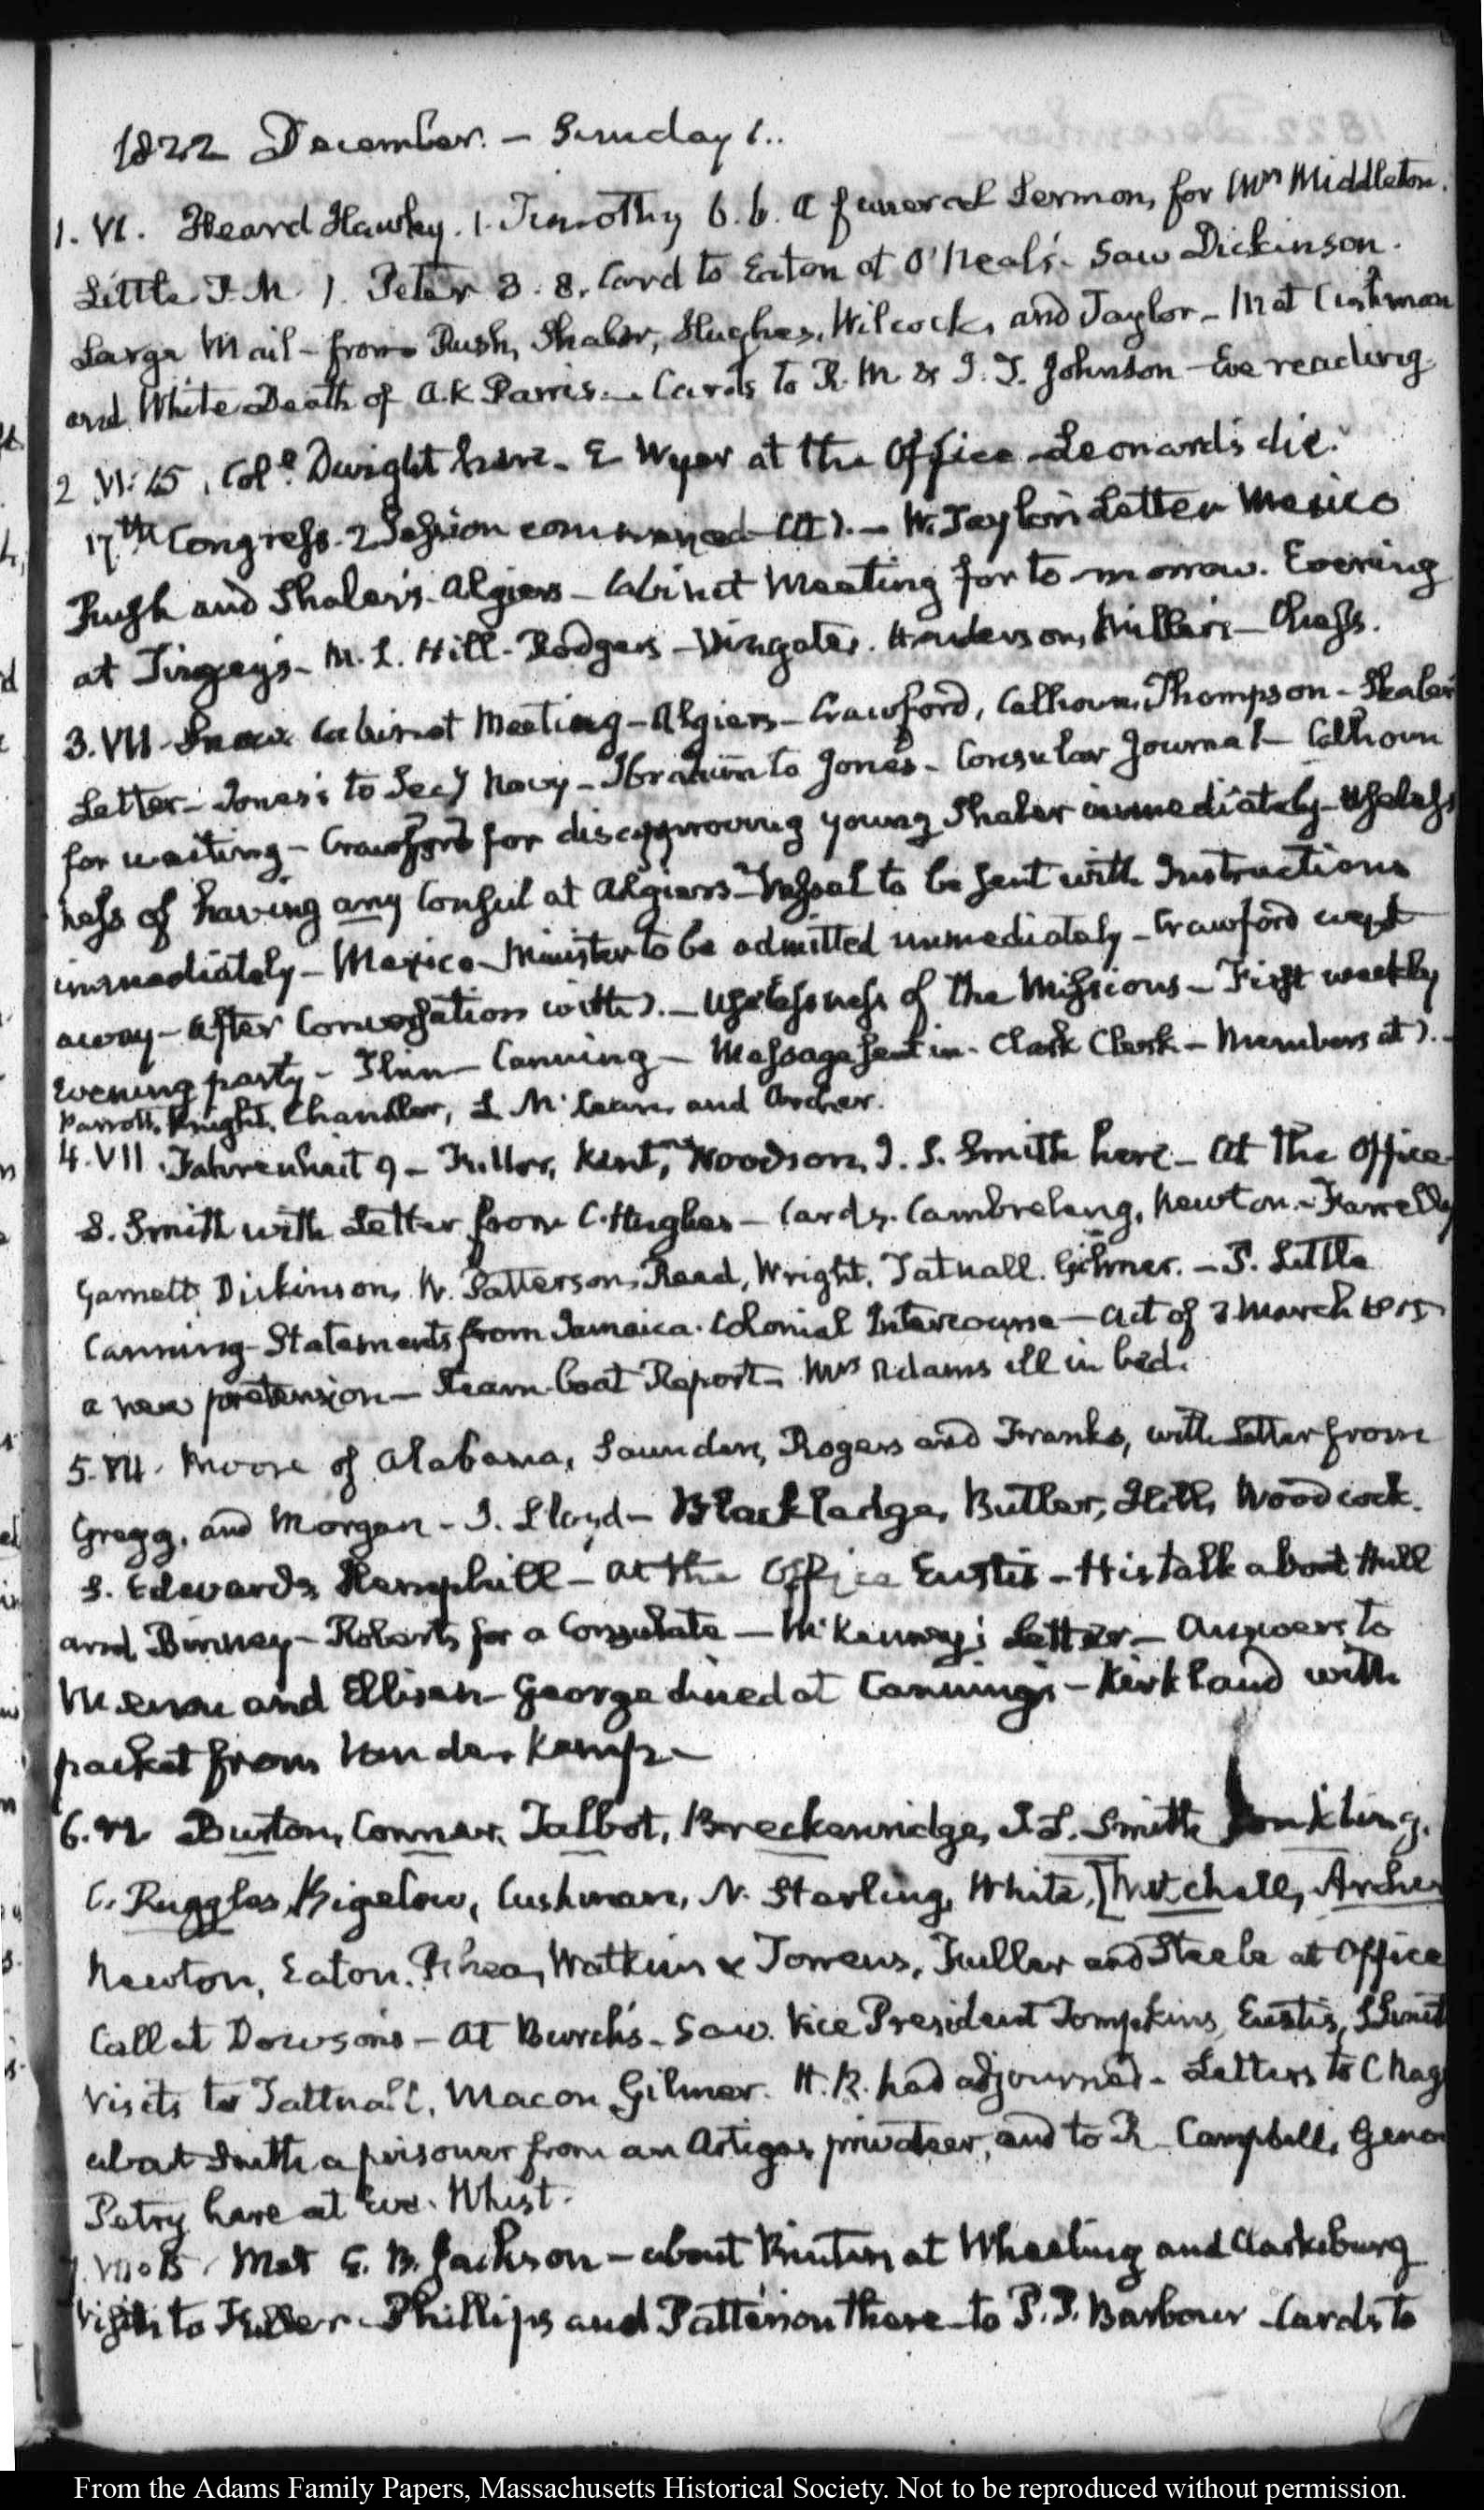 1822 December. – Sunday 1..
1. VI. Heard Hawley. 1. Timothy 6. 6. A funeral Sermon, for Mrs Middleton.
Little P.M. 1. Peter 3. 8. Card to Eaton at O'Neal's. Saw Dickinson.
Large Mail – from Rush, Shaler, Hughes, Wilcocks, and Taylor – Met Cushman
and White Death of A. K. Parris. – Cards to R. M & J. T. Johnson – Eve reading
2 VI:15. Col.e Dwight here. E Wyer at the Office – Leonard's die.
17th Congress. 2 Session commenced at ). – W. Taylor's Letter Mexico
Rush and Shaler's. Algiers – Cabinet Meeting for to-morrow. Evening
at Tingey's – M. L. Hill – Rodgers – Wingate. Henderson, Miller's – Chess.
3. VII. Snow Cabinet Meeting – Algiers – Crawford, Calhoun, Thompson – Shaler
Letter – Jones's to Secy Navy – Ibrahim to Jones – Consular Journal – Calhoun
for waiting – Crawford for disapproving young Shaler immediately – Useless
ness of having any Consul at Algiers – Vessel to be sent with Instructions
immediately – Mexico – Minister to be admitted immediately – Crawford wept
away – After Conversation with ). – Uselessness of the Missions – First weekly
Evening party – Thin – Canning – Message sent in – Clark Clerk – Members at ). –
Parrott, Knight, Chandler, L McLane, and Archer.
4. VII. Fahrenheit 9 – Fuller, Kent, Woodson, J. S. Smith here – At the Office
S. Smith with Letter from C. Hughes – Cards. Cambreleng, Newton. – Farrelly
Garnett, Dickinson, W. Patterson, Read, Wright, Tatnall. Gilmer. – P. Little
Canning – Statements from Jamaica. Colonial Intercourse – Act of 3 March 1815
a new pretension – Steam-boat Report – Mrs Adams ill in bed.
5. VII. Moore of Alabama, Saunders, Rogers and Franks, with Letter from
Gregg, and Morgan – J. Lloyd – Blackledge, Butler, Hill, Woodcock.
S. Edwards, Hemphill – At the Office Eustis – His talk about Hull
and Binney – Roberts for a Consulate – McKenney's Letter – Answers to
Menou and Ellison – George dined at Canning's – Kirkland with
packet from Vander Kemp –
6. VI Burton, Conner, Talbot, Breckenridge, J. S. Smith Conkling.
C. Ruggles, Bigelow, Cushman, N. Starling, White, [Mitchell, Archer
Newton, Eaton. Rhea, Watkins & Torrens, Fuller and Steele at Office
Call at Dowson's – At Burch's – Saw. Vice President Tompkins, Eustis,
Visits to Tattnall, Macon, Gilmer. H. R. had adjourned – Letters to C Rag
about Smith a prisoner from an Artigas privateer, and to R. Campbell, Genoa
Petry here at Eve. Whist.
7. VII:15. Met E. B. Jackson – about Printers at Wheeling and Clarksburg
Visits to Fuller – Phillips and Patterson there – to P. P. Barbour – Cards to
From the Adams Family Papers, Massachusetts Historical Society. Not to be reproduced without permission.